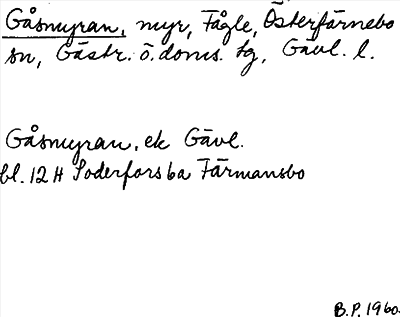 Gåsmyran, myr, Fågle, Österfärnebo
sn, Gästr. ö. doms. tg, Gävl. l.
Gåsmyran, ek Gävl.
bl. 12 H Söderfors 6a Färmansbo
B.P. 1960.